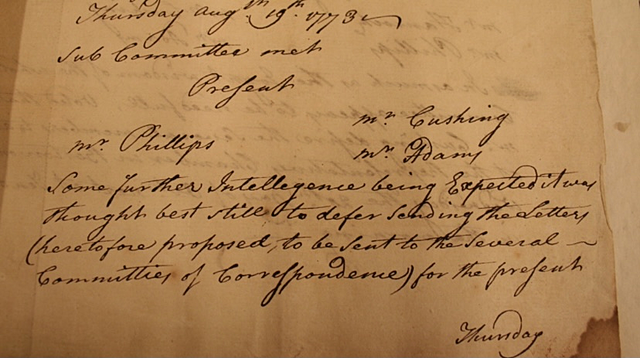 Thursday augth 19th 1773
Sub Committee met
Present
mr Cushing
mr Phillips
mr Adams
Some further Intellegence being Expected it was
thought best still to defer sending the Letters
(heretofore proposed, to be sent to the several
Committies of Correspondence) for the present
Thursday